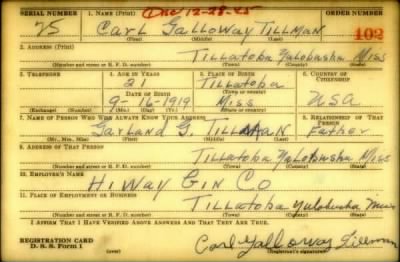 SERIAL NUMBER 1. NAME (Print) Dec 12-28-45 ORDER NUMBER
75 Carl Galloway TILLMAN 102
(First) (Middle) (Last)
2. ADDRESS (Print)
Tillatoba Yalobusha Miss
(Number and street or R. F. D. number) (Town) (County) (State)
3. TELEPHONE 4. AGE IN YEARS 5. PLACE OF BIRTH 6. COUNTRY OF CITIZENSHIP
21 Tillatoba
DATE OF BIRTH (Town or county)
9-16-1919 Miss USA
(Exchange) (Number) (Mo.) (Day) (Yr.) (State or country)
7. NAME OF PERSON WHO WILL ALWAYS KNOW YOUR ADDRESS 8. RELATIONSHIP OF THAT PERSON
Garland G. TILLMAN Father
(Mr., Mrs., Miss) (First) (Middle) (Last)
9. ADDRESS OF THAT PERSON
Tillatoba Yalobusha Miss
(Number and street or R. F. D. number) (Town) (County) (State)
10. EMPLOYER'S NAME
Hi Way Gin Co
11. PLACE OF EMPLOYMENT OR BUSINESS
Tillatoba Yalobusha Miss
(Number and street or R. F. D. number) (Town) (County) (State)
I AFFIRM THAT I HAVE VERIFIED ABOVE ANSWERS AND THAT THEY ARE TRUE.
REGISTRATION CARD
D. S. S. Form 1 (over) Carl Galloway Tillman
(Registrant's signature)